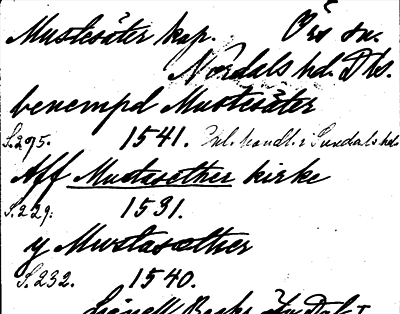 Mustesäter kap. Örs sn.
Nordals hd. Dls.
benempd Mustesäter
S.295. 1541. handl. i Sundals hd.
Aff Mustasether kirke
S.229. 1531.
y Mwstasæther
S.232. 1540.
Lignell Beskr.